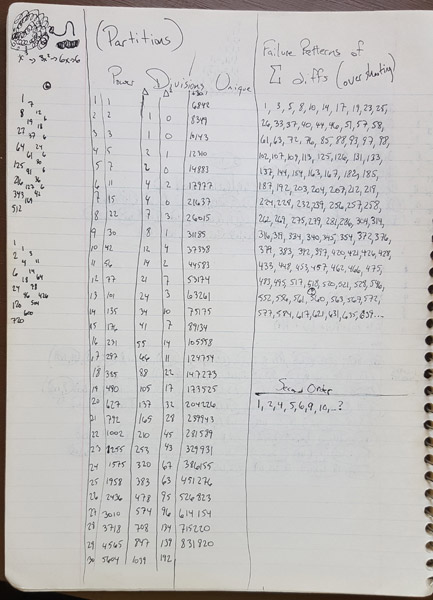 (Partitions)
x³ → 3x² → 6x → 6
Power Divisions Unique
1 1 6842
2 2 1 0 8349
3 3 1 0 10143
4 5 2 1 12310
5 7 2 0 14883
6 11 4 2 17977
7 15 4 0 21637
8 22 7 3 26015
9 30 8 1 31185
10 42 12 4 37338
11 56 14 2 44583
12 77 21 7 53174
13 101 24 3 63261
14 135 34 10 75175
15 176 41 7 89134
16 231 55 14 105558
17 297 66 11 124754
18 385 88 22 147273
19 490 105 17 173525
20 627 137 32 204226
21 792 165 28 239943
22 1002 210 45 281589
23 1255 253 43 329931
24 1575 320 67 386155
25 1958 383 63 451276
26 2436 478 95 526823
27 3010 574 96 614154
28 3718 708 134 715220
29 4565 847 139 831820
30 5604 1039 192
1
7
8 12
19
27 18
37 6
64 24
61 6
125 30
91 6
216 36
127 6
343 42
169
512
Failure Patterns of
Σ diffs (overshooting)
1, 3, 5, 8, 10, 14, 17, 19, 23, 25,
61, 63, 72, 76, 85, 88, 93, 97, 98,
102, 107, 109, 113, 125, 126, 131, 133,
137, 144, 154, 163, 167, 182, 185,
187, 192, 203, 204, 207, 212, 218,
224, 228, 232, 239, 256, 257, 258,
262, 269, 275, 279, 281, 286, 304, 314,
316, 319, 334, 340, 345, 354, 372, 376,
379, 383, 392, 397, 420, 421, 426, 428,
433, 448, 453, 457, 462, 466, 475,
552, 556, 561, 560, 563, 567, 572,
577, 584, 617, 621, 631, 635, 639...
Second Order
1, 2, 4, 5, 6, 9, 10, ...?